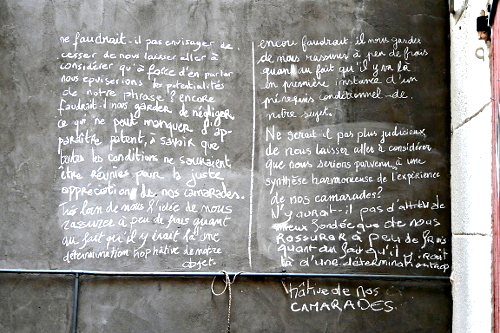 ne faudrait-il pas envisager de
cesser de nous laisser aller à
considérer qu'à force d'en parler
nous épuiserions les potentialités
de notre phrase? encore
faudrait-il nous garder de négliger
ce qui ne peut manquer d'ap-
paraître patent, à savoir que
toutes les conditions ne sauraient
être réunies pour la juste
appréciation de nos camarades.
Très loin de nous l'idée de nous
rassurer à peu de frais quant
au fait qu'il y irait là d'une
détermination trop hâtive de notre
objet.
encore faudrait-il nous garder
de nous rassurer à peu de frais
quant au fait qu'il y va là
en première instance d'un
prérequis conditionnel de
notre sujet.
Ne serait-il pas plus judicieux
de nous laisser aller à considérer
que nous serions parvenu à une
synthèse harmonieuse de l'expérience
de nos camarades?
N'y aurait-il pas
mieux fondée que de nous
rassurer à peu de frais
quant au fait qu'il y irait
là d'une détermination trop
hâtive de nos
CAMARADES.